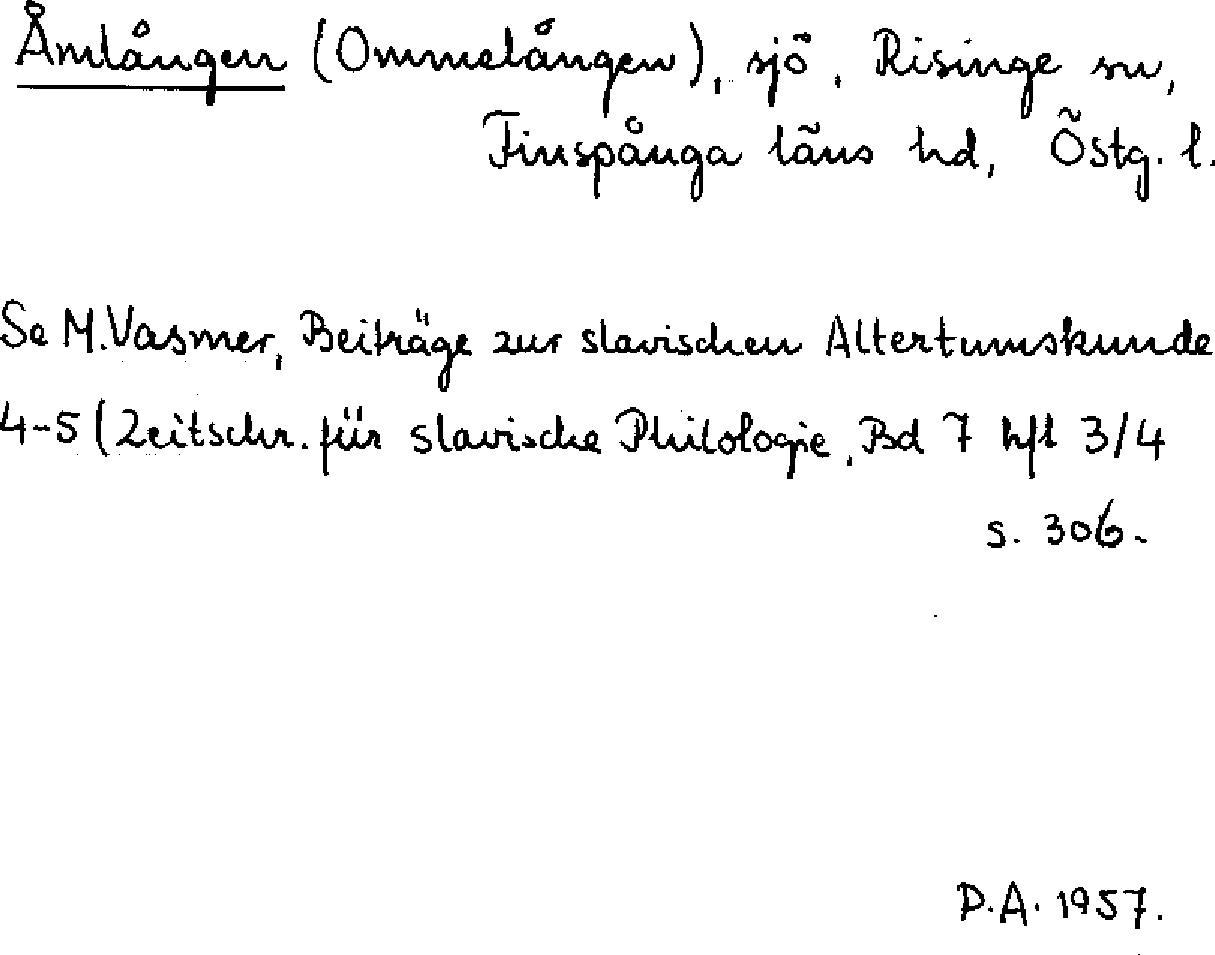 Åmlången (Ommelången), sjö, Risinge sn,
Finspånga läns hd, Östg. l.
Se M. Vasmer, Beiträge zur slavischen Altertumskunde
4-5 (Zeitschr. für slavische Philologie, Bd 7 hft 3/4
s. 306.
P.A. 1957.